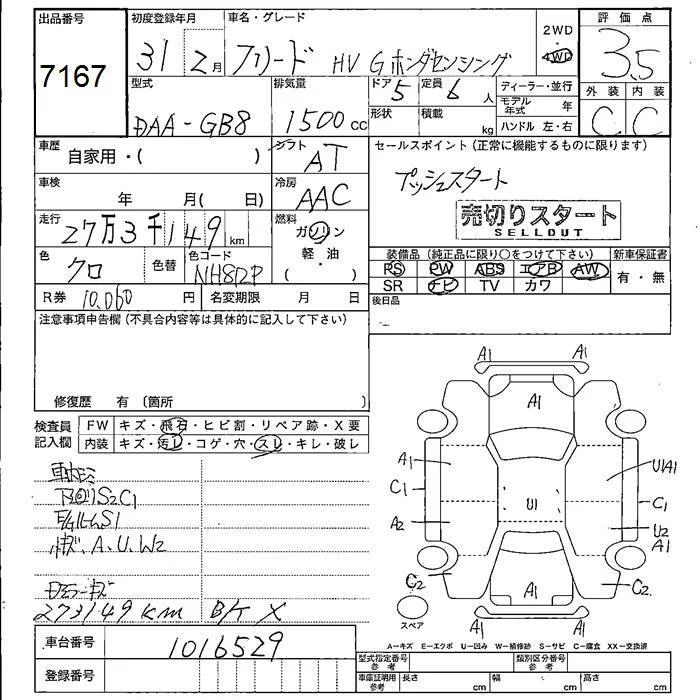 出品番号 初度登録年月 車名・グレード 2WD 評価点
7167 31 2月 フリード HV G ホンダセンシング 4WD 3.5
型式 排気量 ドア 定員 ディーラー・並行 外装 内装
DAA-GB8 1500cc 5 6人 モデル年式 年 C C
形状 積載 kg ハンドル 左・右
車歴 自家用・( ) シフト AT セールスポイント(正常に機能するものに限ります)
車検 年 月( 日) 冷房 AAC プッシュスタート
走行 27万3千149km 燃料 ガソリン 売切りスタート
SELLOUT
軽・油
( )
色 クロ 色替 色コード NH812P 装備品(純正品に限り○をつけて下さい) 新車保証書
PS PW ABS エアB AW 有・無
SR ナビ TV カワ
R券 10,060円 名変期限 月 日 後日品
注意事項申告欄(不具合内容等は具体的に記入して下さい)
修復歴 有(箇所 )
検査員記入欄 FW キズ・飛石・ヒビ割・リペア跡・X要
内装 キズ・汚レ・コゲ・穴・スレ・キレ・破レ
S2C1
S1
A.U.W2
273149km B/K X
車台番号 1016529
登録番号
A1 A1
A1
A1 U1A1
C1 C1
U1
A2 U2
A1
C2 C2
A1
A1 A1
スペア
A−キズ E−エクボ U−凹み W−補修跡 S−サビ C−腐食 XX−交換済
型式指定番号 参考 類別区分番号 参考
車庫証明用 参考 長さ cm 幅 cm 高さ cm